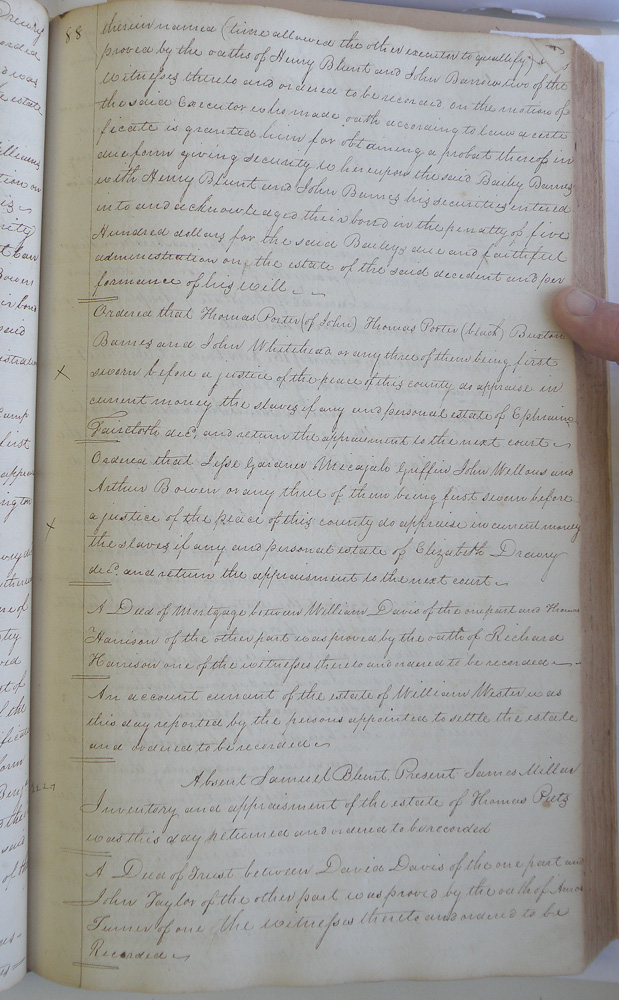 88
therein named (time allowed the other executor to quallify) &
proved by the oaths of Henry Blunt and John Barnes two of the
witnesses thereto and ordered to be recorded on the motion of
the said Executor who made oath according to law a certi
ficate is granted him for obtaining a probat thereof in
due form giving security whereupon the said Bailey Barnes
with Henry Blunt and John Barnes his securities entered
into and acknowledged their bond in the penalty of five
Hundred dollars for the said Baileys due and faithful
administration on the estate of the said decedent and per
formance of his will
Ordered that Thomas Porter (of John) Thomas Porter (black) Buxton
Barnes and John Whitehead or any three of them being first
sworn before a justice of the peace of this county do appraise in
current money the slaves if any and personal estate of Ephraim
Faircloth decd. and return the appraisment to the next court
Ordered that Jesse Gardner Micajah Griffin John Wellons and
Arthur Bowen or any three of them being first sworn before
a justice of the peace of this county do appraise in current money
the slaves if any and personal estate of Elizabeth Drewry
decd. and return the appraisment to the next court
A Deed of Mortgage between William Davis of the one part and Thomas
Harrison of the other part was proved by the oath of Richard
Harrison one of the witnesses thereto and ordered to be recorded
An account currant of the estate of William Wester was
this day reported by the persons appointed to settle the estate
and ordered to be recorded
Absent Samuel Blunt Present James Millar
Inventory and appraisment of the estate of Thomas Pretz
was this day returned and ordered to be recorded
A Deed of Trust between David Davis of the one part and
John Taylor of the other part was proved by the oath of Amos
Turner of one the witnesses thereto and ordered to be
Recorded